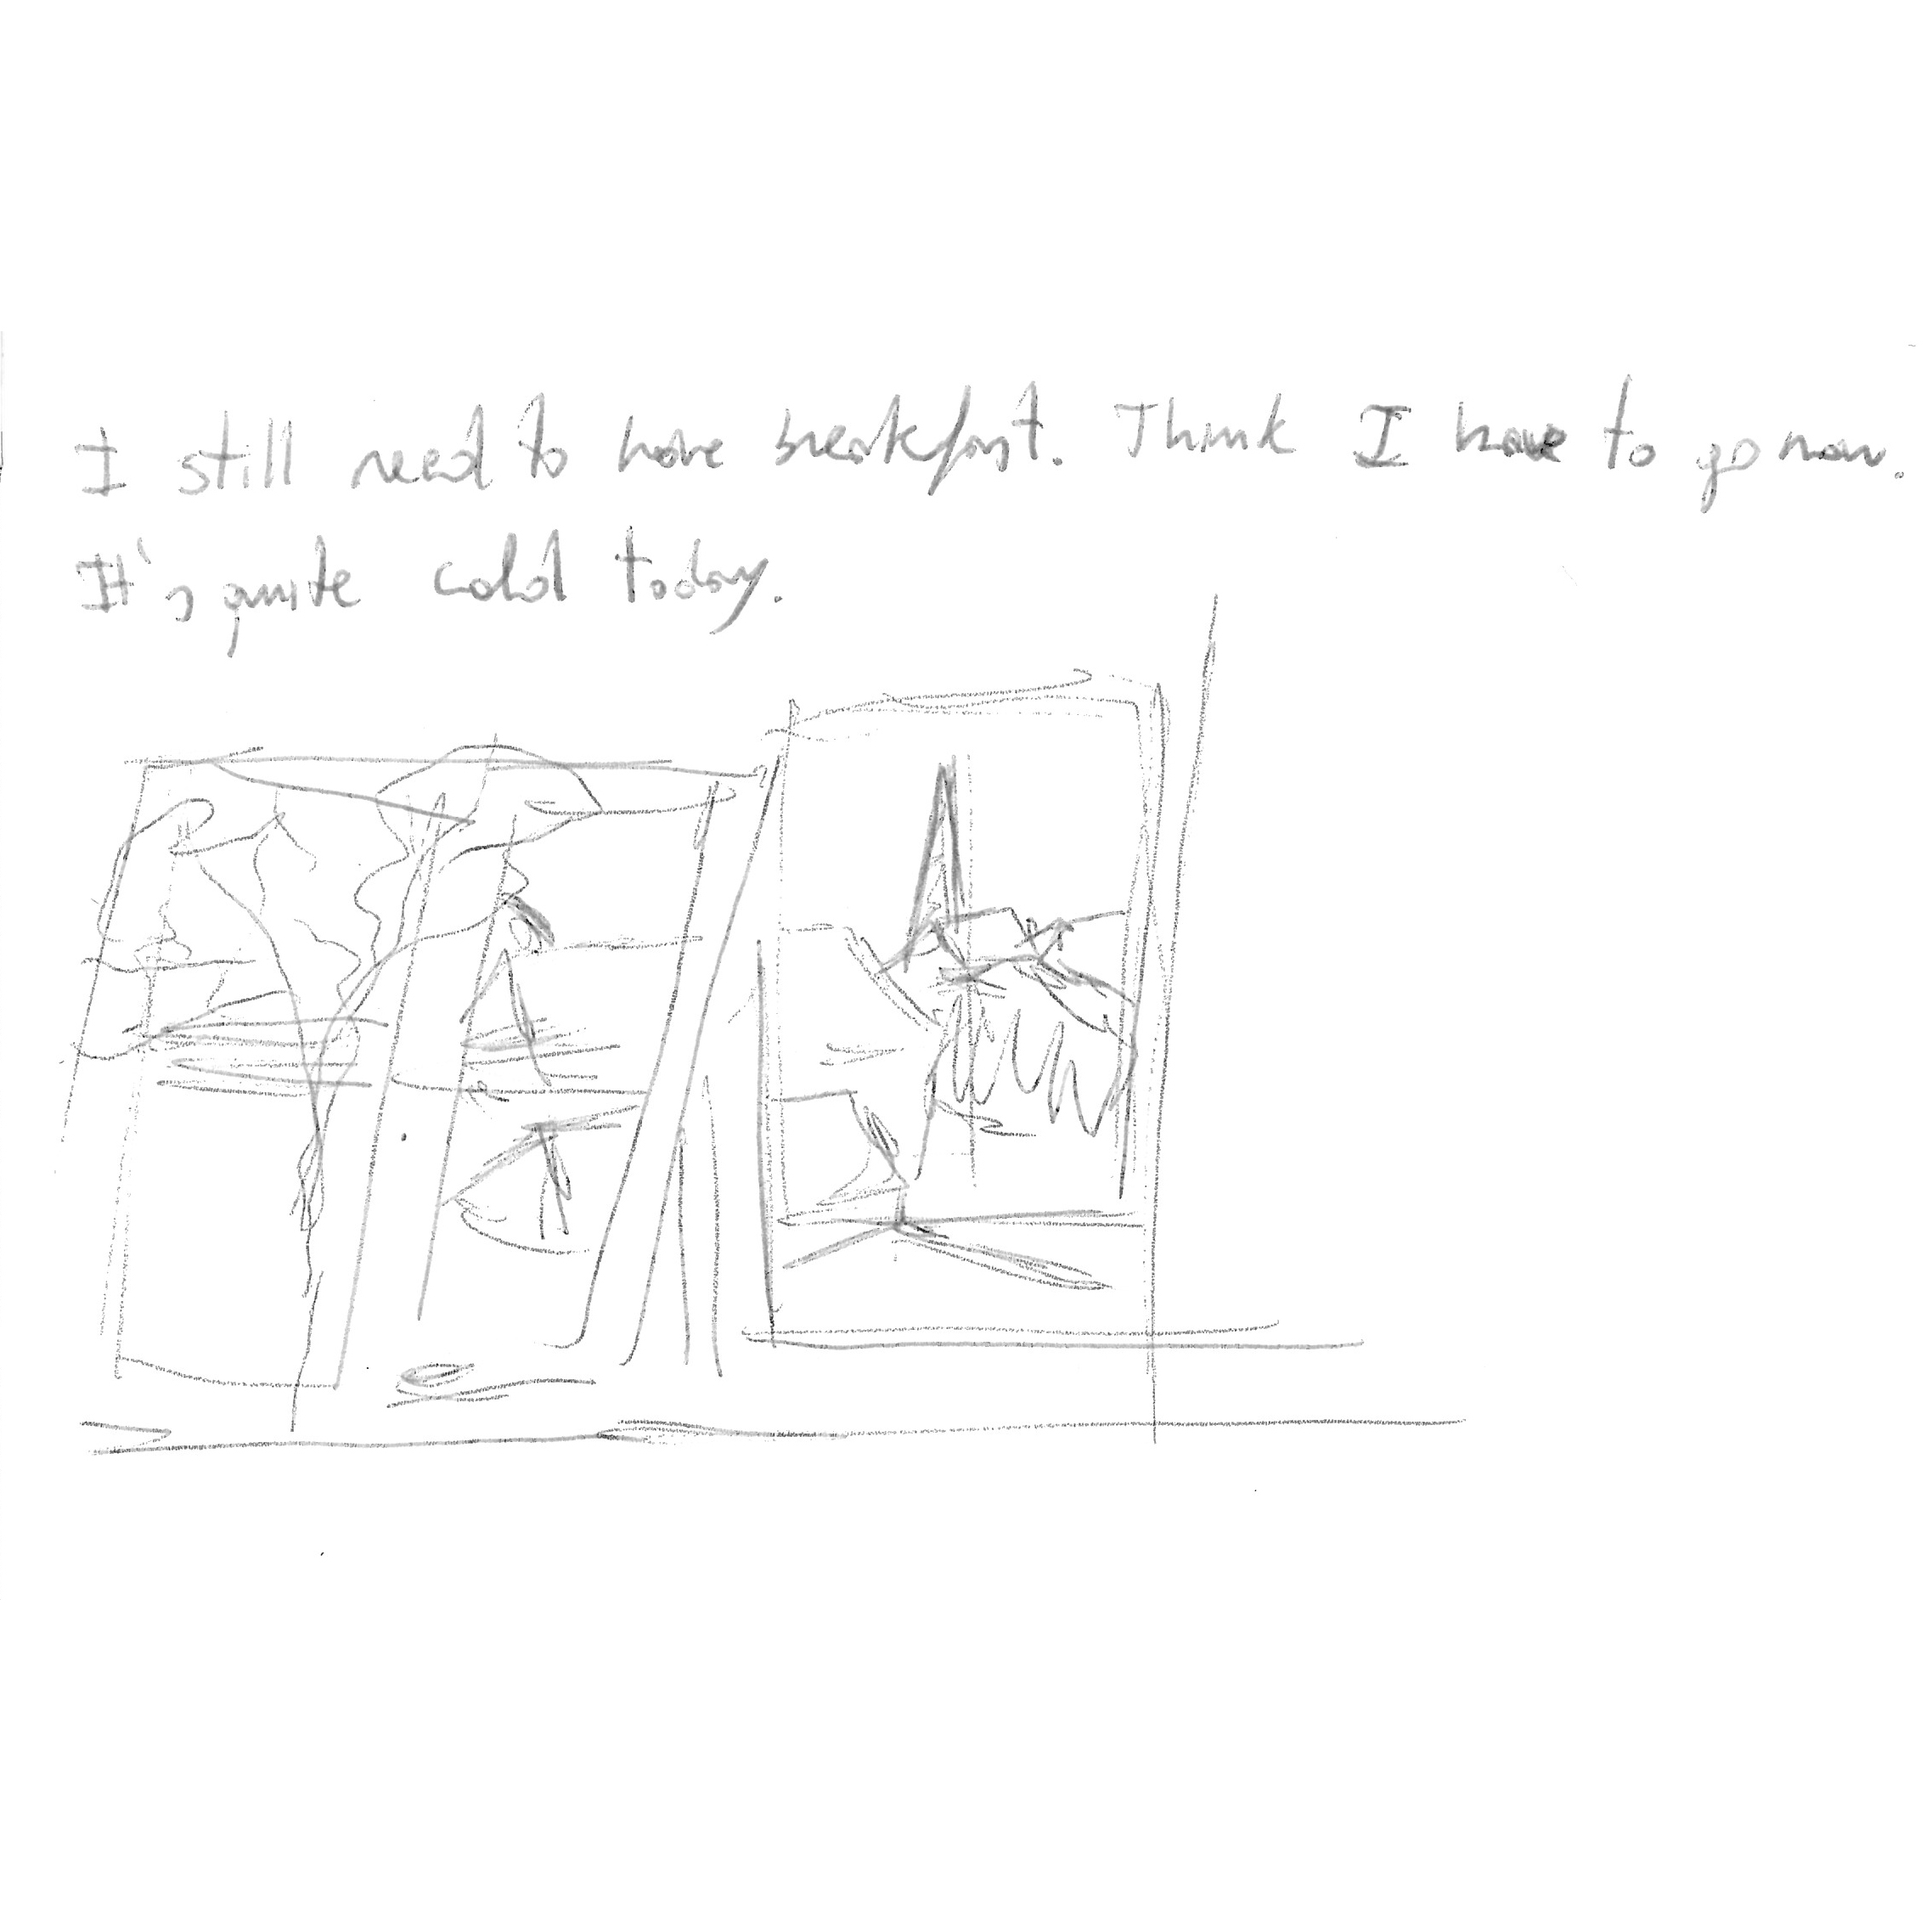 I still need to have breakfast. Think I have to go now.
It's quite cold today.